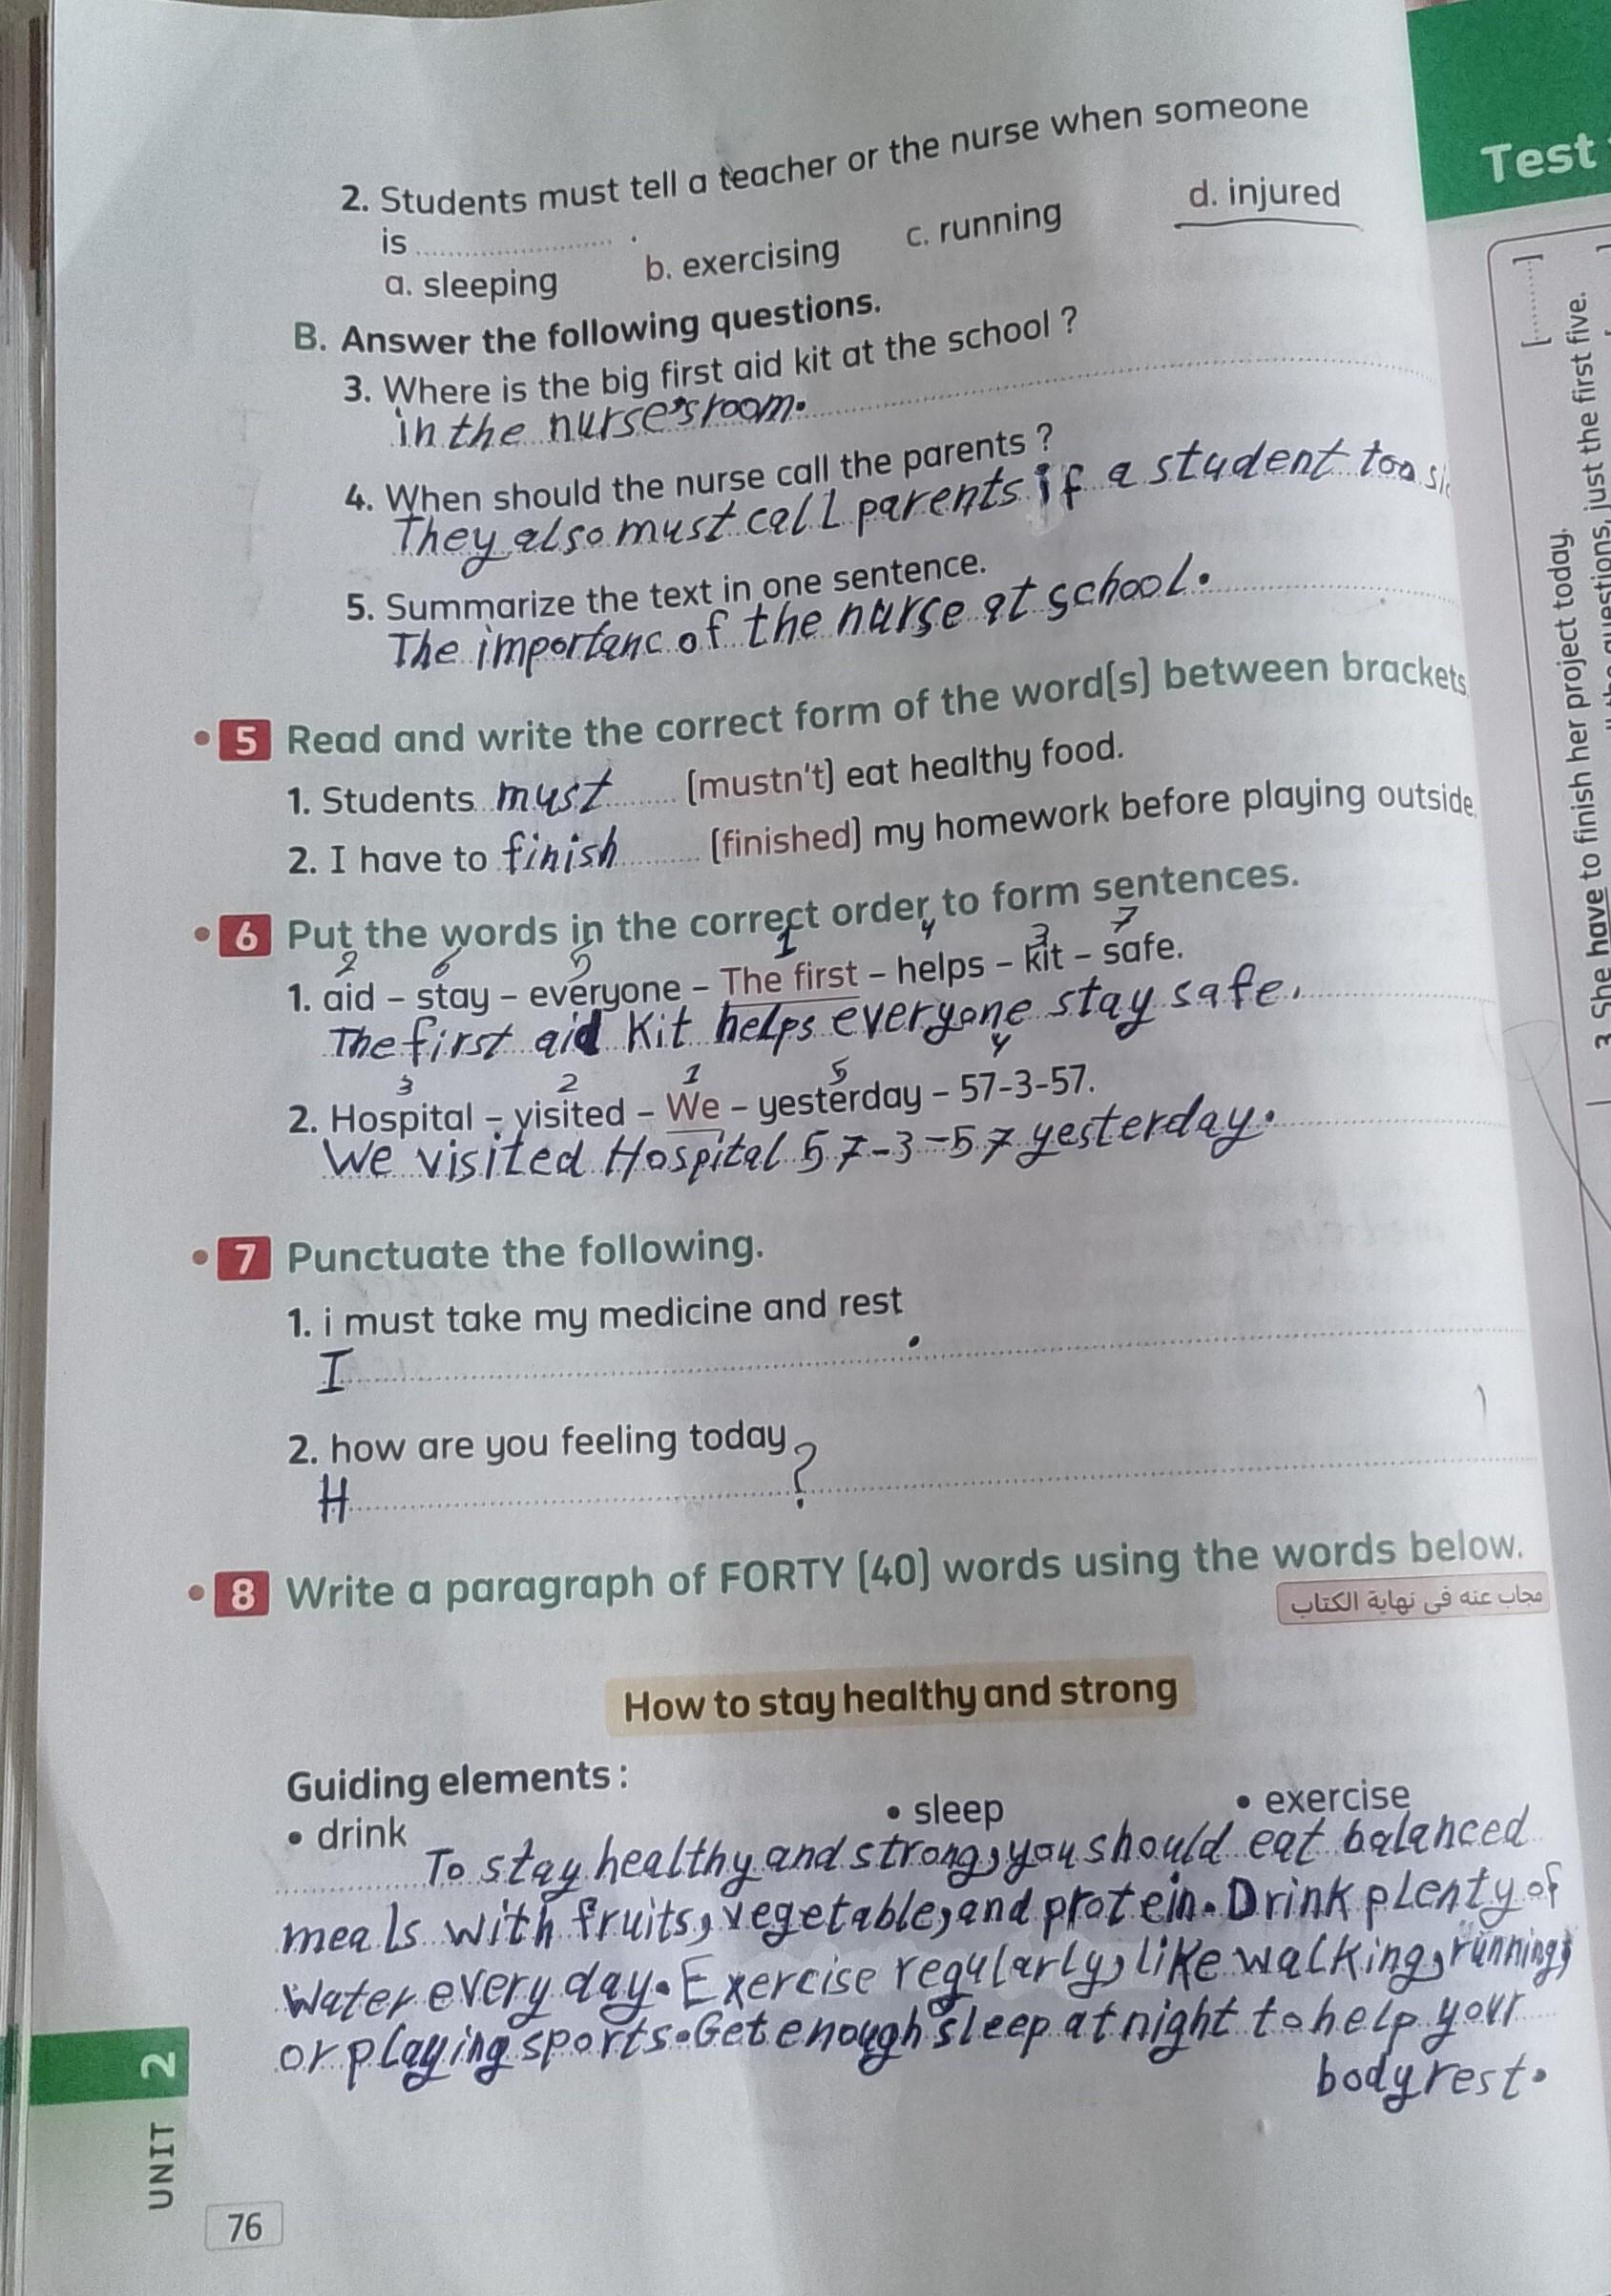 2. Students must tell a teacher or the nurse when someone
is .................... .
a. sleeping b. exercising c. running d. injured
B. Answer the following questions.
3. Where is the big first aid kit at the school ?
in the nurse's room.
4. When should the nurse call the parents ?
They also must call parents if a student too
5. Summarize the text in one sentence.
The importanc of the nurse at school.
5 Read and write the correct form of the word(s) between brackets
1. Students must (mustn't) eat healthy food.
2. I have to finish (finished) my homework before playing outside.
6 Put the words in the correct order to form sentences.
2 6 5 1 4 3 7
1. aid – stay – everyone – The first – helps – kit – safe.
The first aid Kit helps everyone stay safe.
3 2 1 5 4
2. Hospital – visited – We – yesterday – 57-3-57.
We visited Hospital 57-3-57 yesterday.
7 Punctuate the following.
1. i must take my medicine and rest
I .
2. how are you feeling today
H ?
8 Write a paragraph of FORTY (40) words using the words below.
مجاب عنه فى نهاية الكتاب
How to stay healthy and strong
Guiding elements :
• drink • sleep • exercise
To stay healthy and strong, you should eat balanced
meals with fruits, vegetable, and protein. Drink plenty of
Water every day. Exercise regularly, like walking, running,
or playing sports. Get enough sleep at night to help your
body rest.
UNIT 2
76
Test
[..........]
just the first five.
3. She have to finish her project today.